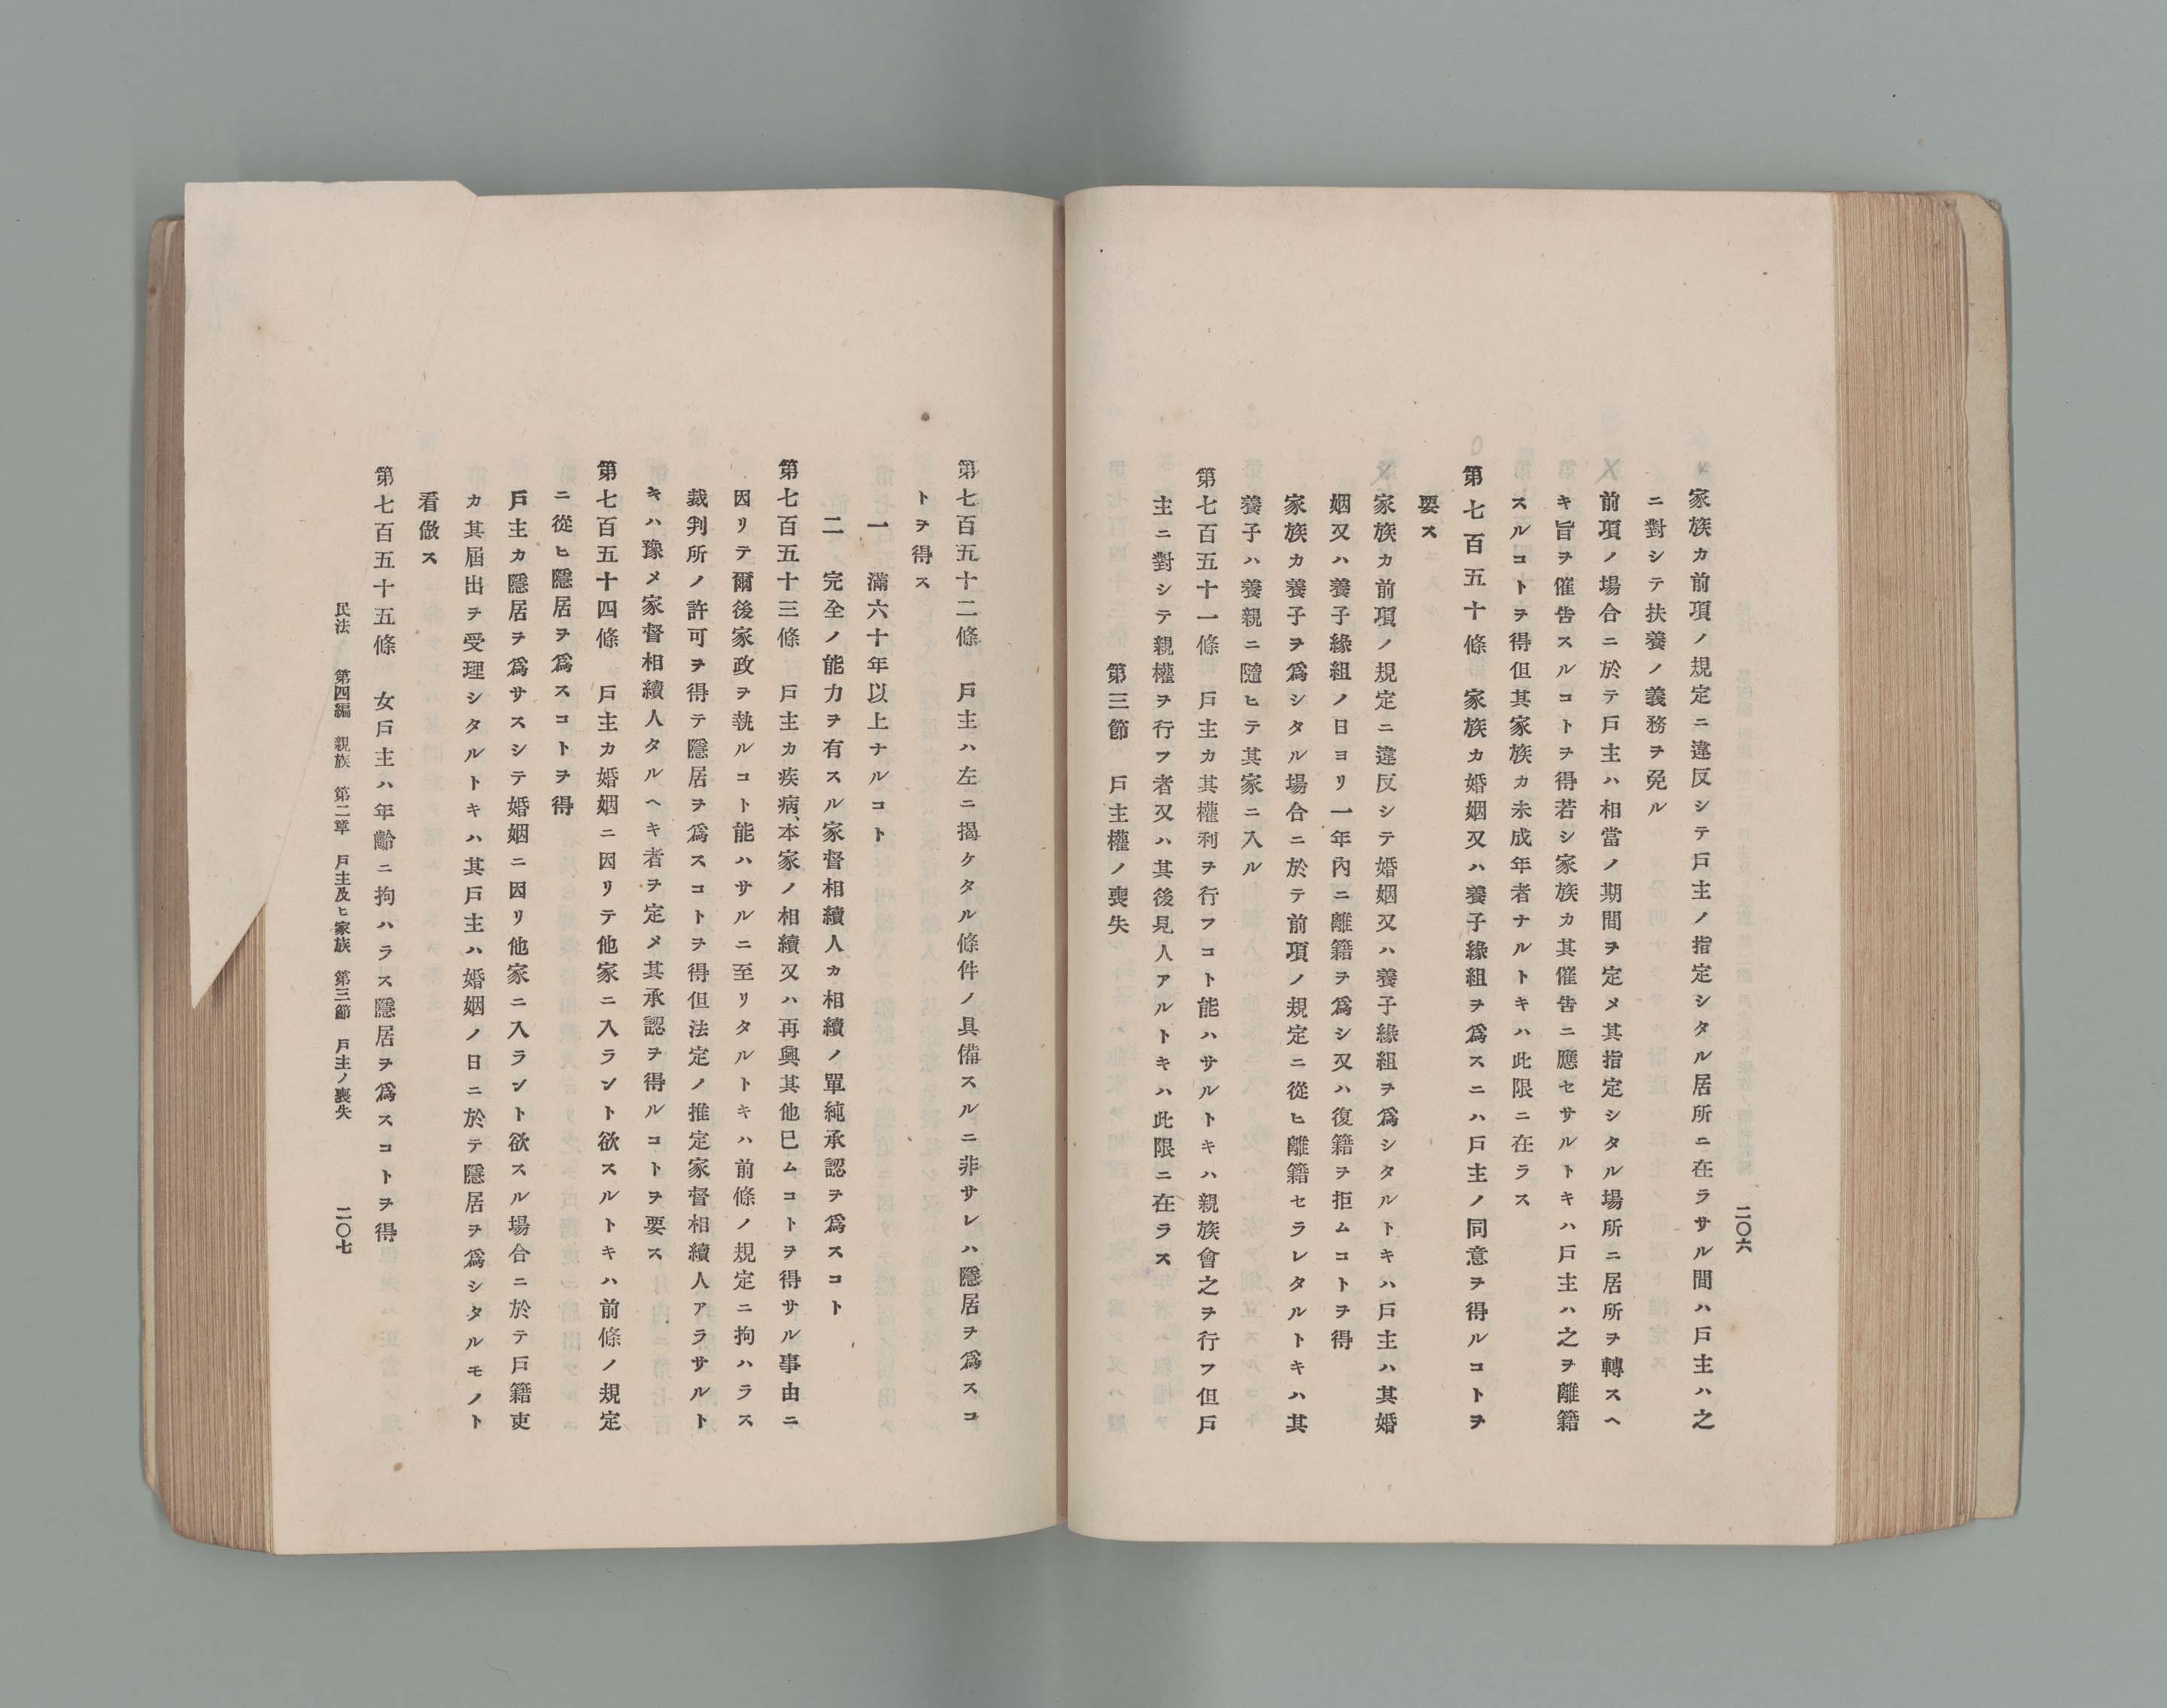 二〇六
家族カ前項ノ規定ニ違反シテ戸主ノ指定シタル居所ニ在ラサル間ハ戸主ハ之
ニ對シテ扶養ノ義務ヲ免ル
前項ノ場合ニ於テ戸主ハ相當ノ期間ヲ定メ其指定シタル場所ニ居所ヲ轉スヘ
キ旨ヲ催告スルコトヲ得若シ家族カ其催告ニ應セサルトキハ戸主ハ之ヲ離籍
スルコトヲ得但其家族カ未成年者ナルトキハ此限ニ在ラス
第七百五十條 家族カ婚姻又ハ養子緣組ヲ爲スニハ戸主ノ同意ヲ得ルコトヲ
要ス
家族カ前項ノ規定ニ違反シテ婚姻又ハ養子緣組ヲ爲シタルトキハ戸主ハ其婚
姻又ハ養子緣組ノ日ヨリ一年內ニ離籍ヲ爲シ又ハ復籍ヲ拒ムコトヲ得
家族カ養子ヲ爲シタル場合ニ於テ前項ノ規定ニ從ヒ離籍セラレタルトキハ其
養子ハ養親ニ隨ヒテ其家ニ入ル
第七百五十一條 戸主カ其權利ヲ行フコト能ハサルトキハ親族會之ヲ行フ但戸
主ニ對シテ親權ヲ行フ者又ハ其後見人アルトキハ此限ニ在ラス
第三節 戸主權ノ喪失
第七百五十二條 戸主ハ左ニ揭ケタル條件ノ具備スルニ非サレハ隱居ヲ爲スコ
トヲ得ス
一 滿六十年以上ナルコト
二 完全ノ能力ヲ有スル家督相續人カ相續ノ單純承認ヲ爲スコト
第七百五十三條 戸主カ疾病、本家ノ相續又ハ再興其他已ムコトヲ得サル事由ニ
因リテ爾後家政ヲ執ルコト能ハサルニ至リタルトキハ前條ノ規定ニ拘ハラス
裁判所ノ許可ヲ得テ隱居ヲ爲スコトヲ得但法定ノ推定家督相續人アラサルト
キハ豫メ家督相續人タルヘキ者ヲ定メ其承認ヲ得ルコトヲ要ス
第七百五十四條 戸主カ婚姻ニ因リテ他家ニ入ラント欲スルトキハ前條ノ規定
ニ從ヒ隱居ヲ爲スコトヲ得
戸主カ隱居ヲ爲サスシテ婚姻ニ因リ他家ニ入ラント欲スル場合ニ於テ戸籍吏
カ其屆出ヲ受理シタルトキハ其戸主ハ婚姻ノ日ニ於テ隱居ヲ爲シタルモノト
看做ス
第七百五十五條 女戸主ハ年齡ニ拘ハラス隱居ヲ爲スコトヲ得
民法 第四編 親族 第二章 戸主及ヒ家族 第三節 戸主ノ喪失 二〇七